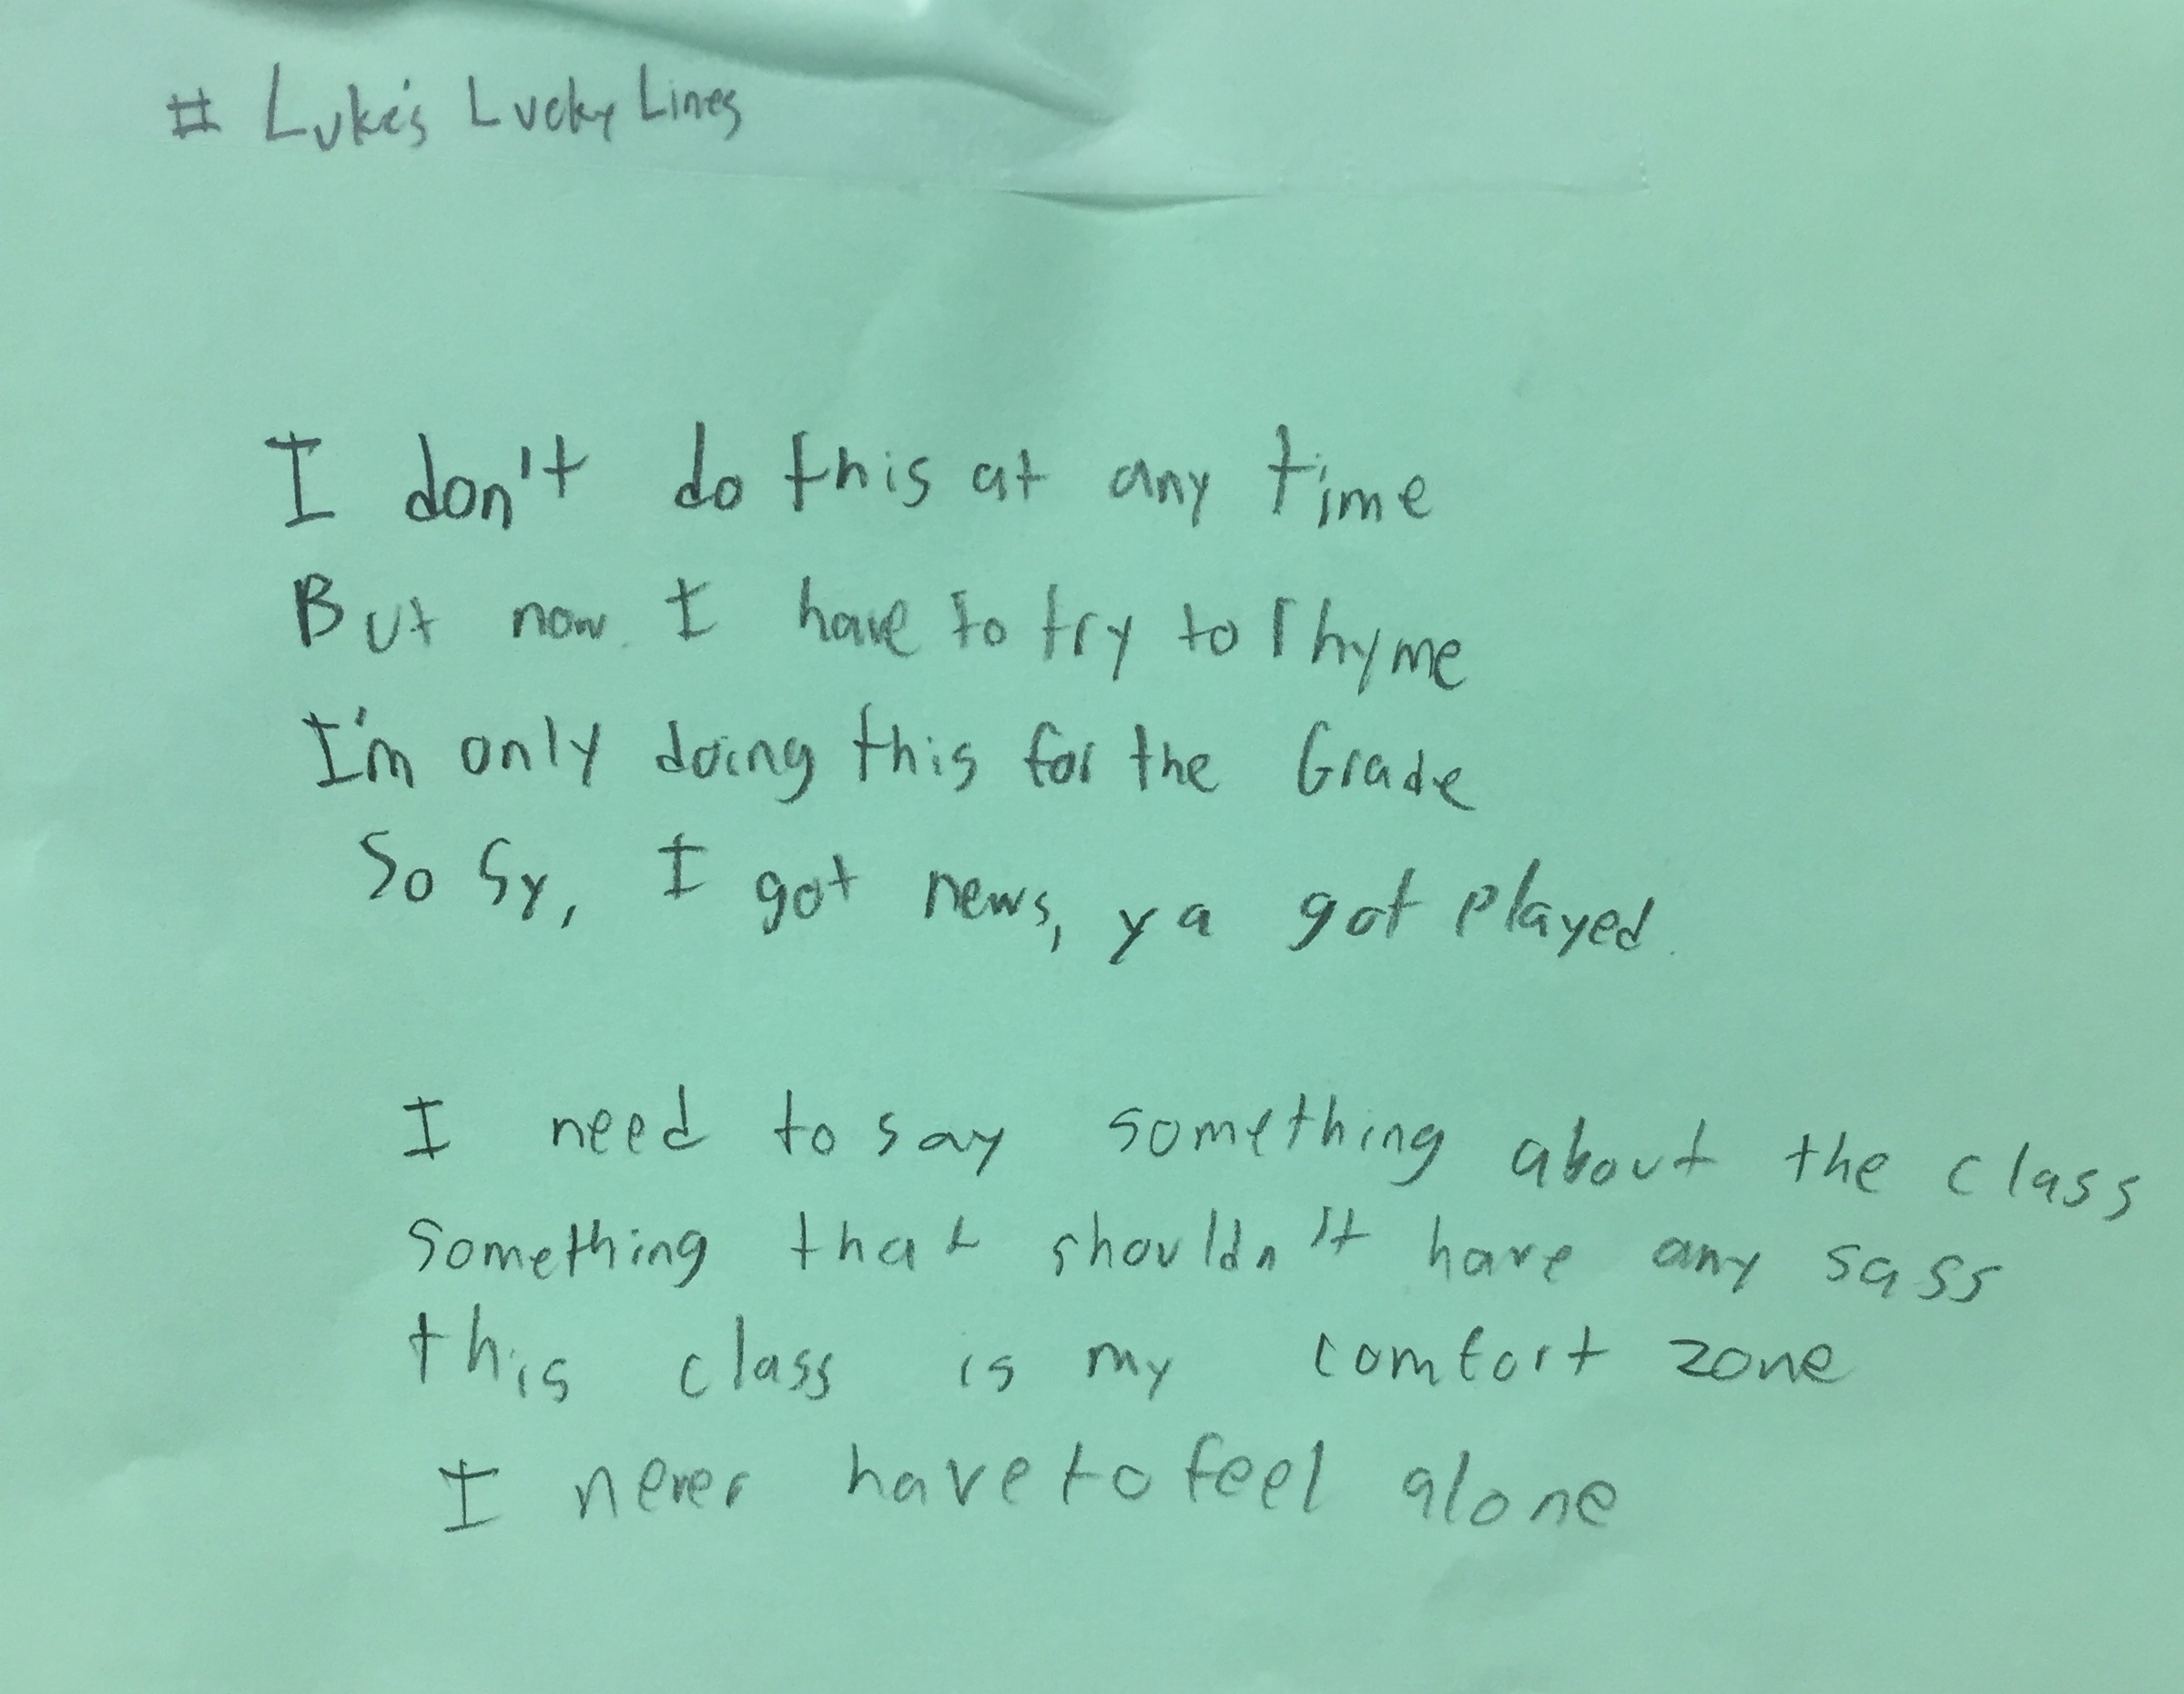 # Luke's Lucky Lines
I don't do this at any time
But now I have to try to rhyme
I'm only doing this for the Grade
So Sy, I got news, ya got played.
I need to say something about the class
Something that shouldn't have any sass
this class is my comfort zone
I never have to feel alone